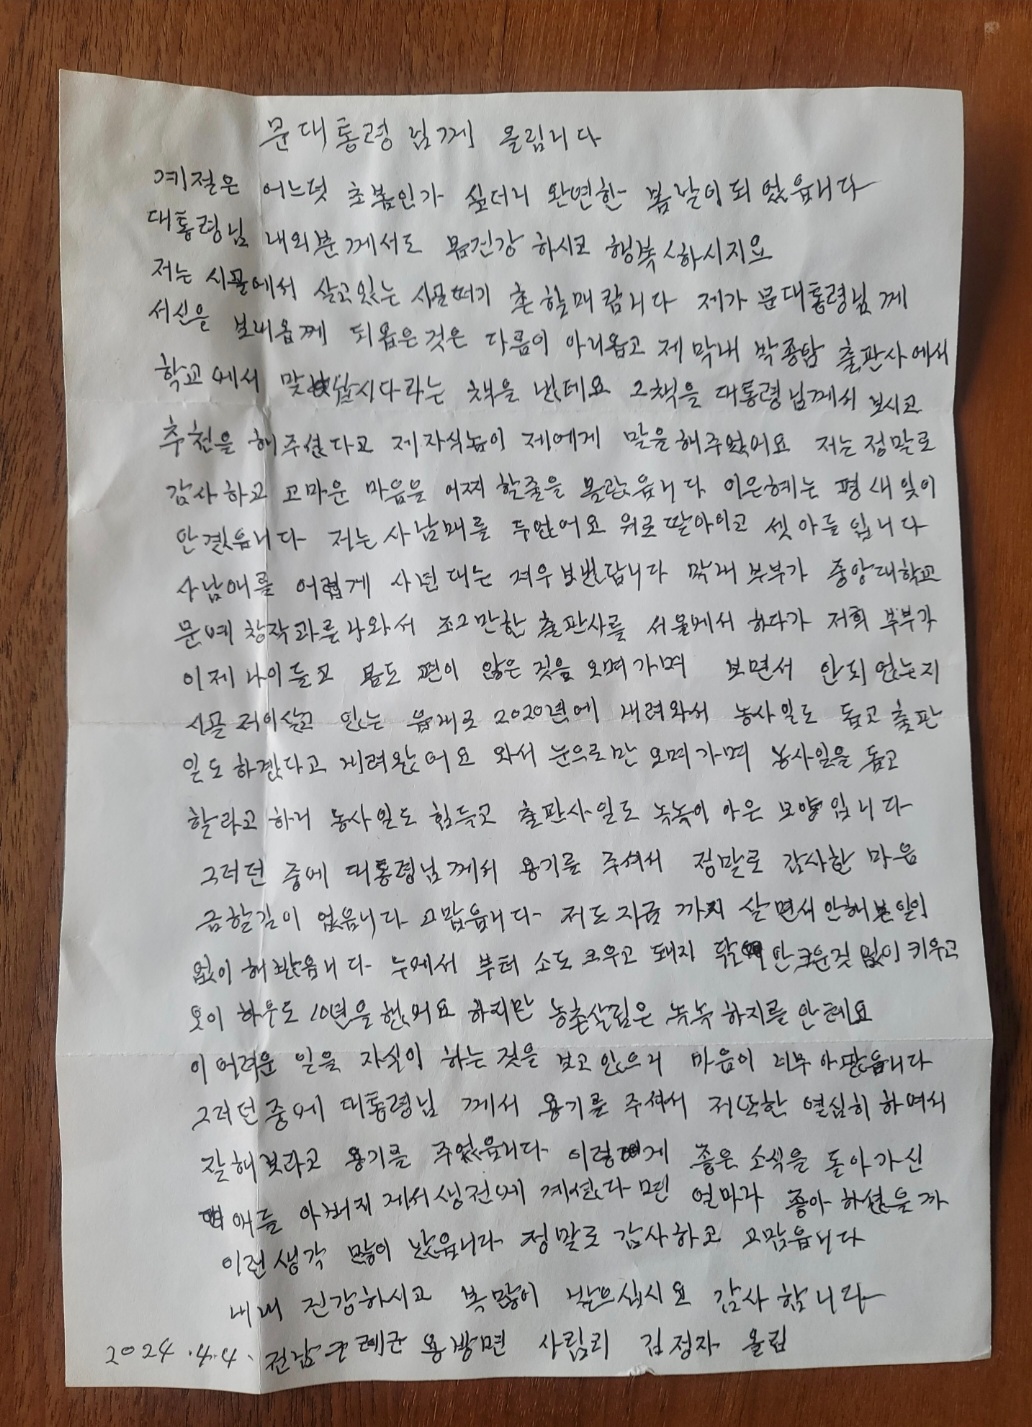 문대통령님께 올립니다
계절은 어느덧 초봄인가 싶더니 완연한 봄날이 되었읍니다
대통령님 내외분께서도 몸건강 하시고 행복 하시지요
저는 시골에서 살고있는 시골떠기 촌 할매람니다 제가 문대통령님께
서신을 보내옵께 되옵은 것은 다름이 아리옵고 제 막내 박종 출판사에서
학교에서 맞 십시다라는 책을 냈데요 그책을 대통령님께서 보시고
추천을 해주셨다고 제자식놈이 제에게 말을해주웠어요 저는 정말로
감사하고 고마운 마음을 어찌 할줄을 몰랐읍니다 이은혜는 평생잊이
안겠읍니다 저는 사남매를 두었어요 위로 딸아이고 셋 아들입니다
사남애를 어렵게 사년대는 겨우보낸답니다 막내부부가 중앙대학교
문예창작과를 나와서 조그만한 출판사를 서울에서 하다가 저희 부부가
이제 나이들고 몸도 편이 않은 것을 오며가며 보면서 안되었는지
시골 저이살고 있는 읍내로 2020년에 내려와서 농사일도 돕고 출판
일도 하겠다고 내려왔어요 와서 눈으로만 오며가며 농사일을 돕고
할라고 하니 농사일도 힘들고 출판사일도 녹녹이 아은 모양입니다
그러던 중에 대통령님께서 용기를 주셔서 정말로 감사한 마음
금할길이 없읍니다 고맙읍니다 저도 지금까지 살면서 안해본일이
없이 해봤읍니다 누에서 부터 소도 크우고 돼지 닭 안크운것 없이 키우고
오이 하우도 10년을 했어요 하지만 농촌살림은 녹녹하지를 안테요
이 어려운 일을 자식이 하는 것을 보고있으니 마음이 너무아팠읍니다
그러던중에 대통령님 께서 용기를 주셔서 저또한 열심히 하며서
잘해보라고 용기를 주었읍니다 이렇에게 좋은 소식을 돌아가신
애들 아버지 게서 생전에 계셨다면 얼마나 좋아 하셨을까
이런생각 많이 났읍니다 정말로 감사하고 고맙읍니다
내내 건강하시고 복많이 받으십시요 감사 합니다
2024.4.4. 전남 구례군 용방면 사림리 김정자 올림